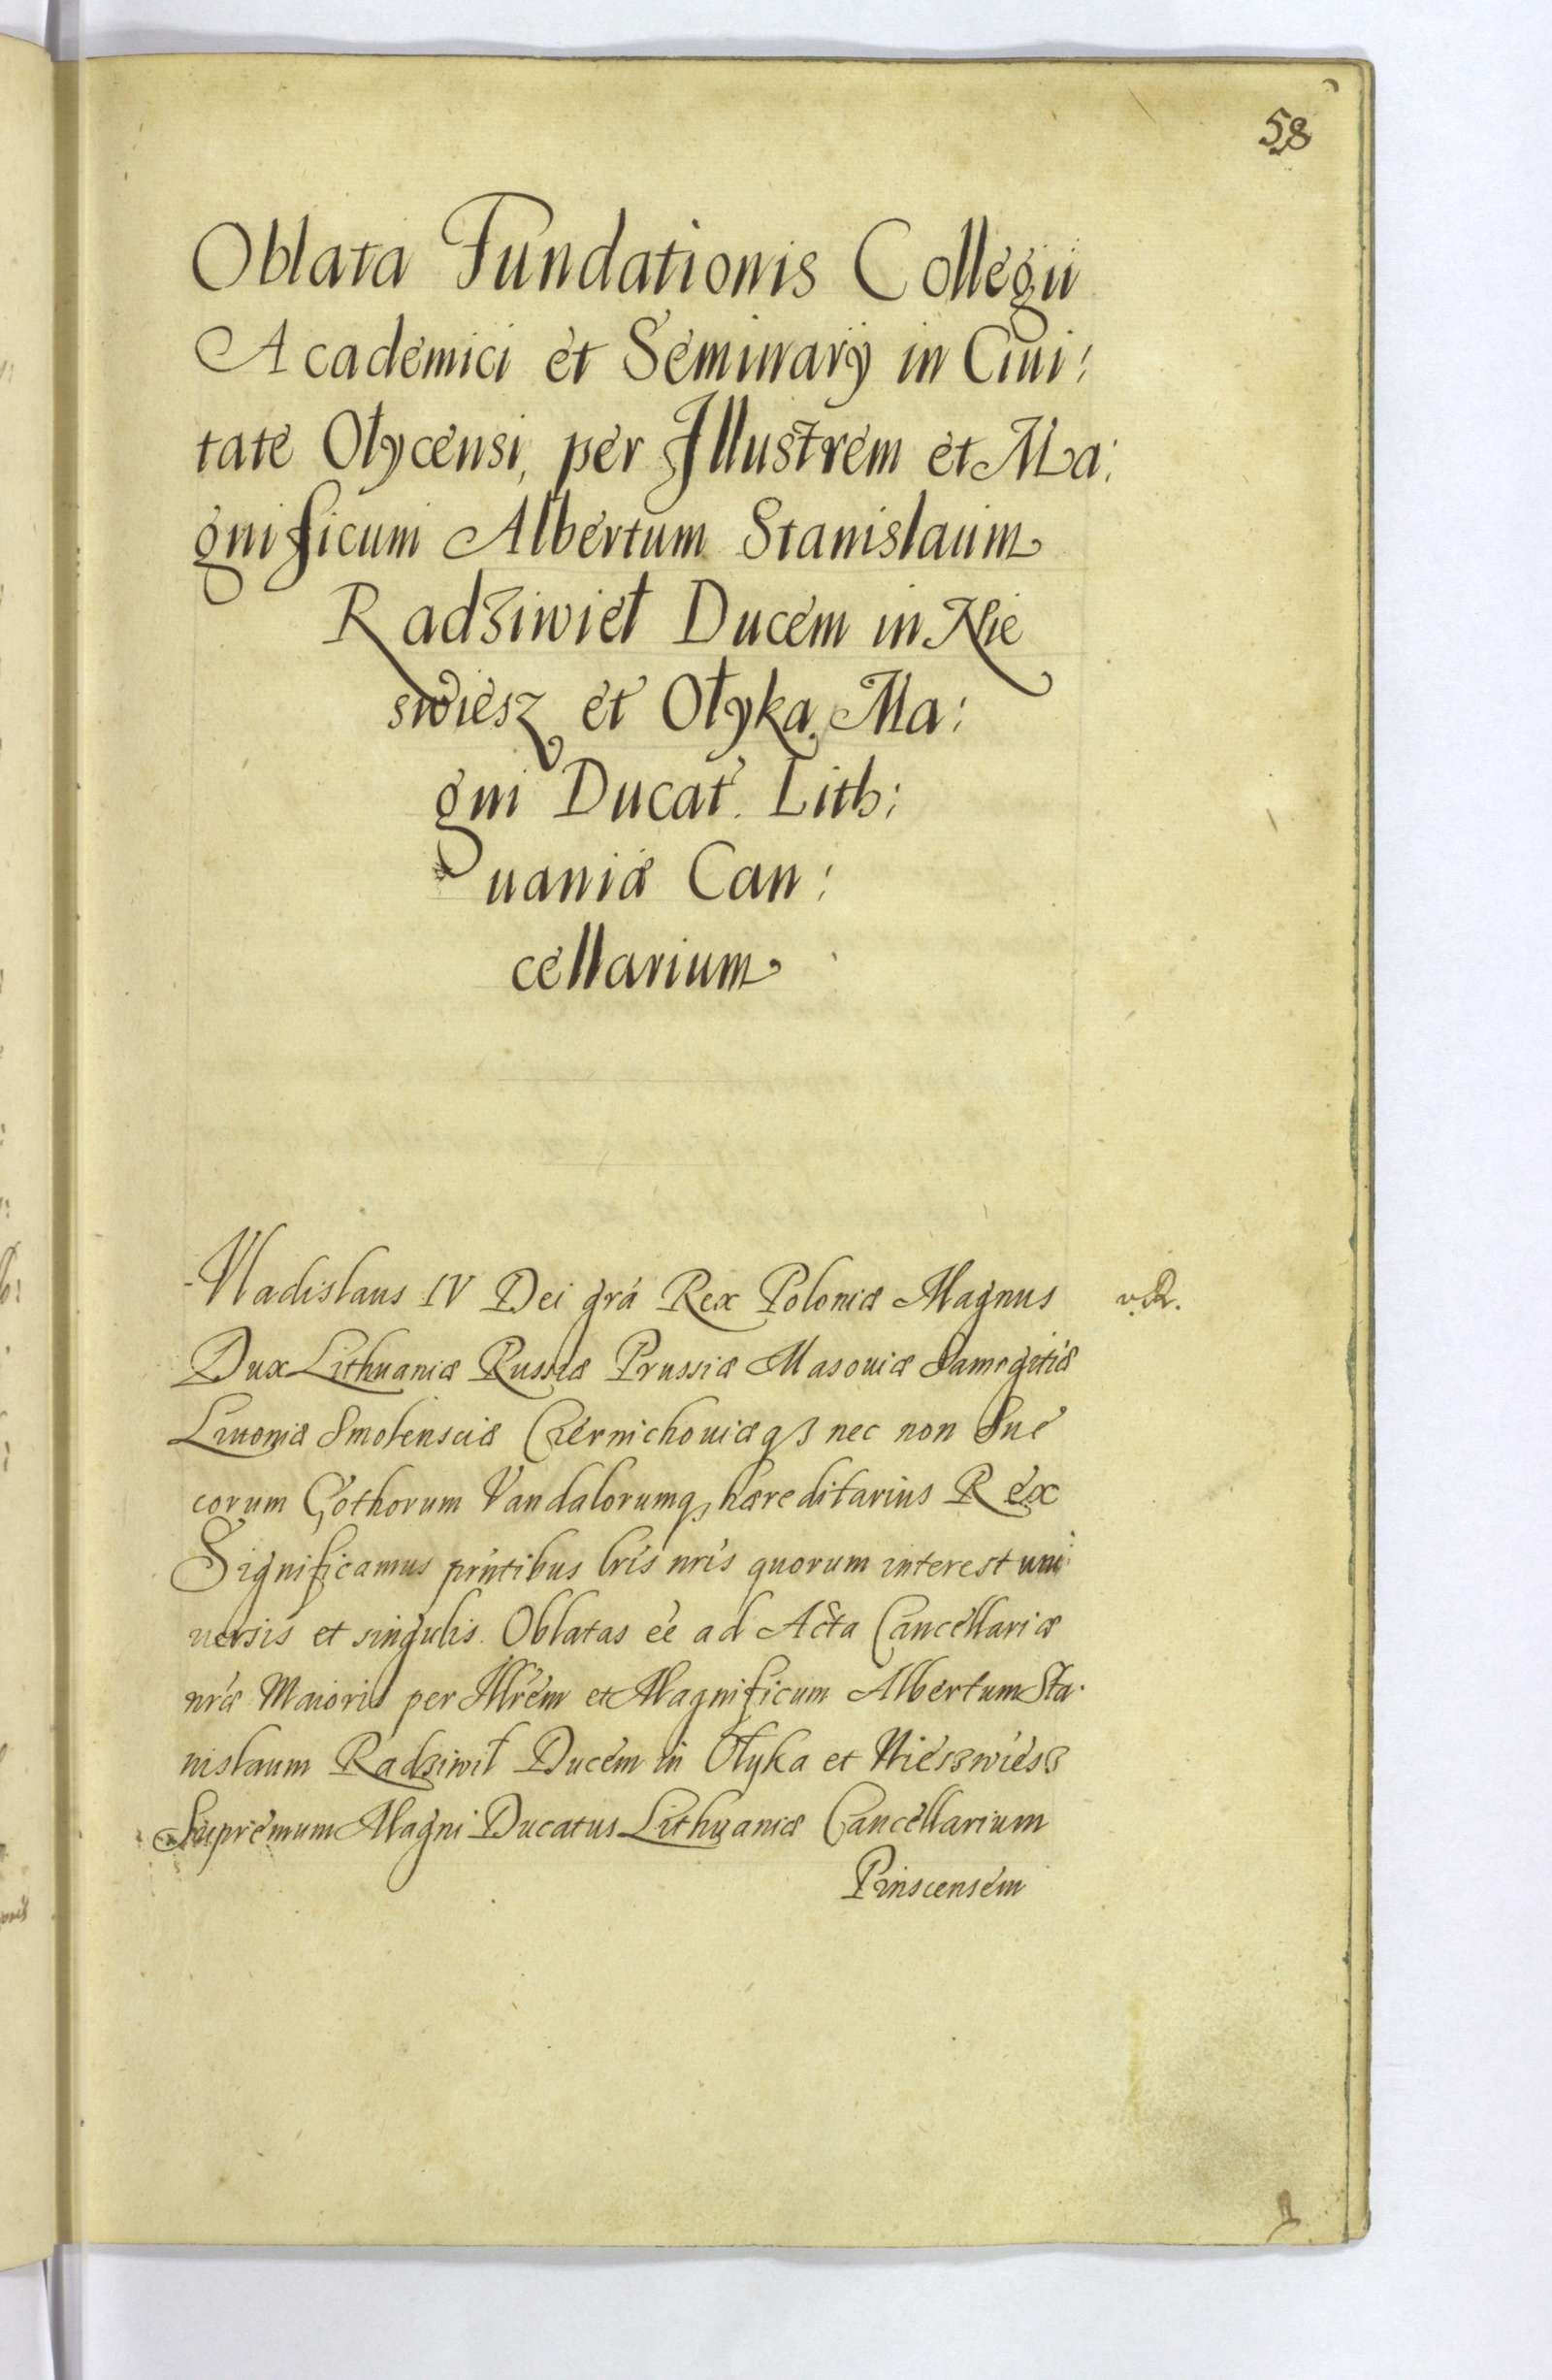 58
Oblata Fundationis Collegii
Academici et Seminarÿ in Ciui:
tate Ołycensi, per Illustrem et Ma:
gnificum Albertum Stanislaum
Radziwieł Ducem in Nie
swiesz et Ołyka, Ma:
gni Ducat. Lith:
uaniæ Can:
cellarium
Vladislaus IV Dei grã Rex Poloniæ Magnus
Dux Lithuaniæ Russiæ Prussiæ Masouiæ Samogitiæ
Liuoniæ Smolensciæ Czernichouiæqz nec non Sue
corum Gothorum Vandalorumqz hæreditarius Rex
Significamus prñtibus lris nris quorum interest uni:
uersis et singulis. Oblatas eẽ ad Acta Cancellariæ
nræ Maioris per Illrem et Magnificum Albertum Sta:
nislaum Radziwił Ducem in Ołyka et Nieszwiesz
Supremum Magni Ducatus Lithuaniæ Cancellarium
Pinscensem